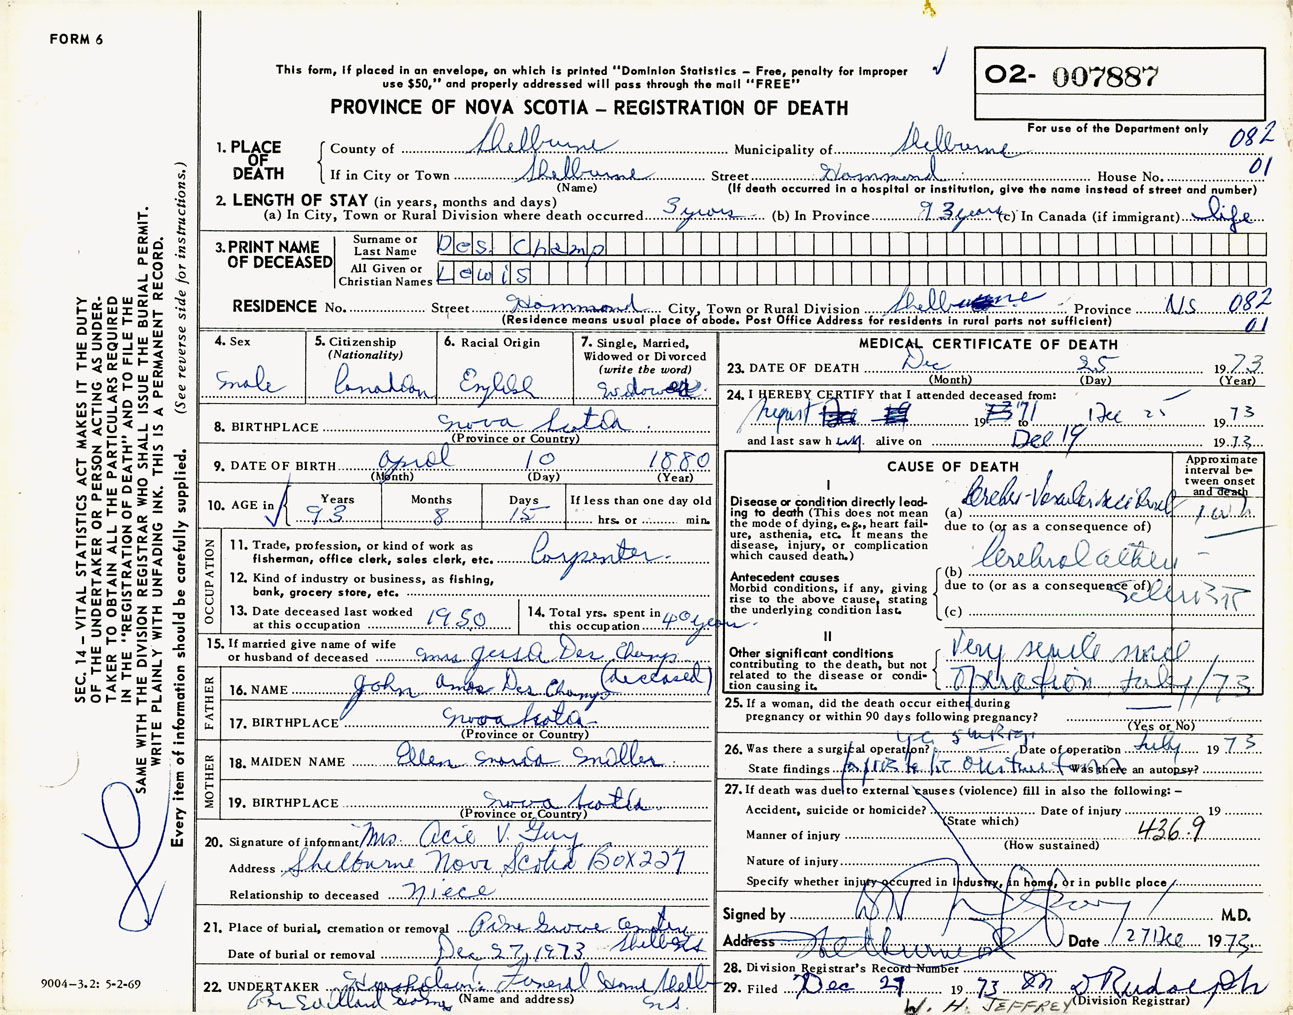 FORM 6
This form, if placed in an envelope, on which is printed "Dominion Statistics – Free, penalty for improper
use $50," and properly addressed will pass through the mail "FREE"
02- 007887
PROVINCE OF NOVA SCOTIA – REGISTRATION OF DEATH
For use of the Department only
082
01
1. PLACE OF DEATH
County of Shelburne Municipality of Shelburne
If in City or Town Shelburne Street Hammond House No.
(Name) (If death occurred in a hospital or institution, give the name instead of street and number)
2. LENGTH OF STAY (in years, months and days)
(a) In City, Town or Rural Division where death occurred 3 years (b) In Province 93 years (c) In Canada (if immigrant) life
3. PRINT NAME OF DECEASED
Surname or Last Name Des Champ
All Given or Christian Names Lewis
RESIDENCE No. Street Hammond City, Town or Rural Division Shelburne Province N.S. 082
01
(Residence means usual place of abode. Post Office Address for residents in rural parts not sufficient)
4. Sex
male
5. Citizenship
(Nationality)
Canadian
6. Racial Origin
English
7. Single, Married,
Widowed or Divorced
(write the word)
Widowed
8. BIRTHPLACE Nova Scotia
(Province or Country)
9. DATE OF BIRTH April 10 1880
(Month) (Day) (Year)
10. AGE in Years 93 Months 8 Days 15 If less than one day old
hrs. or min.
OCCUPATION
11. Trade, profession, or kind of work as
fisherman, office clerk, sales clerk, etc. Carpenter
12. Kind of industry or business, as fishing,
bank, grocery store, etc.
13. Date deceased last worked
at this occupation 1950
14. Total yrs. spent in
this occupation 40 years
15. If married give name of wife
or husband of deceased Mrs. Jessa Des Champ
(deceased)
FATHER
16. NAME John Amos Des Champ
17. BIRTHPLACE Nova Scotia
(Province or Country)
MOTHER
18. MAIDEN NAME Ellen Miller
19. BIRTHPLACE Nova Scotia
(Province or Country)
20. Signature of informant Mrs. Acie V. Guy
Address Shelburne Nova Scotia Box 227
Relationship to deceased Niece
21. Place of burial, cremation or removal Pine Grove
Date of burial or removal Dec 27, 1973
22. UNDERTAKER Funeral Home Shelb
(Name and address) N.S.
MEDICAL CERTIFICATE OF DEATH
23. DATE OF DEATH Dec 25 1973
(Month) (Day) (Year)
24. I HEREBY CERTIFY that I attended deceased from:
August 1971 to Dec 25 1973
and last saw him alive on Dec 19 1973
CAUSE OF DEATH
Approximate
interval be-
tween onset
and death
I
Disease or condition directly lead-
ing to death (This does not mean
the mode of dying, e.g., heart fail-
ure, asthenia, etc. It means the
disease, injury, or complication
which caused death.)
(a) Cerebro-Vascular accident
due to (or as a consequence of)
Antecedent causes
Morbid conditions, if any, giving
rise to the above cause, stating
the underlying condition last.
(b) Cerebral
due to (or as a consequence of)
(c)
II
Other significant conditions
contributing to the death, but not
related to the disease or condi-
tion causing it.
Very senile
operation July/73
25. If a woman, did the death occur either during
pregnancy or within 90 days following pregnancy?
(Yes or No)
26. Was there a surgical operation? Date of operation July 1973
State findings Was there an autopsy?
27. If death was due to external causes (violence) fill in also the following: –
Accident, suicide or homicide? Date of injury 19
(State which)
Manner of injury 436.9
(How sustained)
Nature of injury
Specify whether injury occurred in industry, in home, or in public place
Signed by M.D.
Address Shelburne Date 27 Dec 1973
28. Division Registrar's Record Number
29. Filed Dec 27 1973 D Rudolph
(Division Registrar)
W. H. JEFFREY
SEC. 14 – VITAL STATISTICS ACT MAKES IT THE DUTY
OF THE UNDERTAKER OR PERSON ACTING AS UNDER-
TAKER TO OBTAIN ALL THE PARTICULARS REQUIRED
IN THE "REGISTRATION OF DEATH" AND TO FILE THE
SAME WITH THE DIVISION REGISTRAR WHO SHALL ISSUE THE BURIAL PERMIT.
WRITE PLAINLY WITH UNFADING INK. THIS IS A PERMANENT RECORD.
Every item of information should be carefully supplied. (See reverse side for instructions.)
9004-3.2: 5-2-69